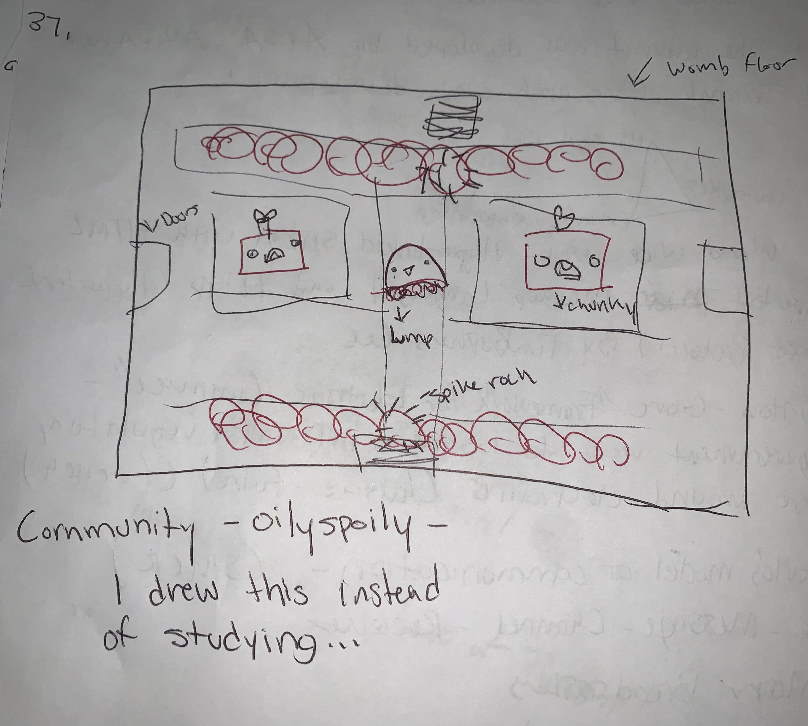 37.
Womb Floor
Doors
Lump
chunky
spike rock
Community - oilyspoily -
I drew this instead
of studying...